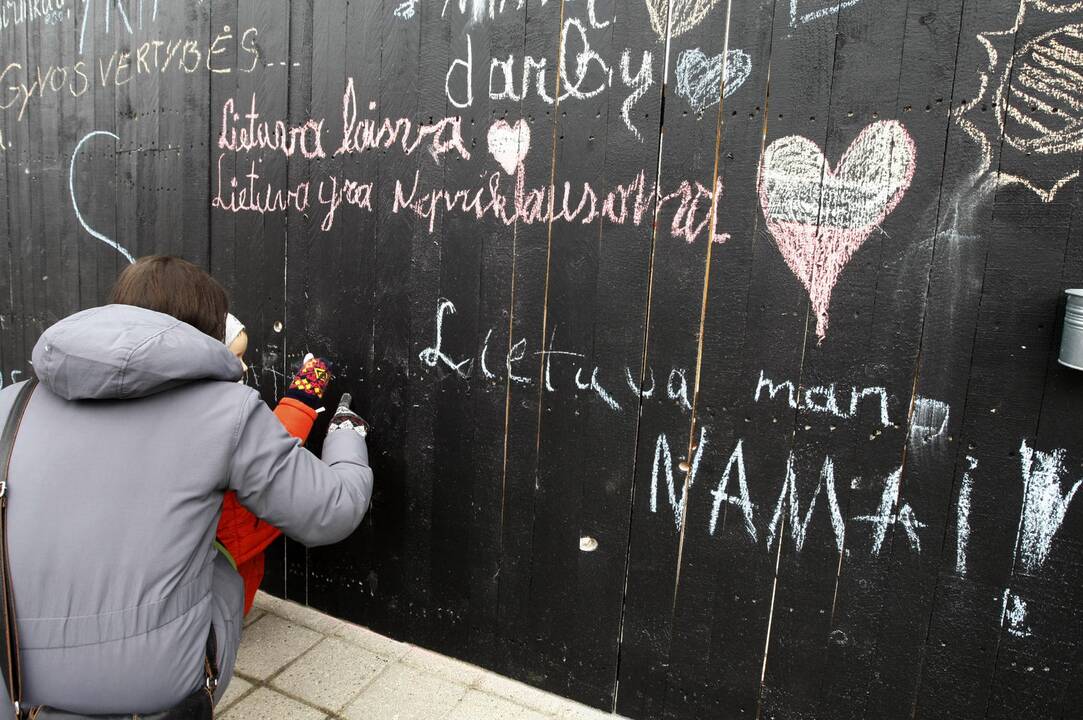 GYVOS VERTYBĖS...
darby
Lietuva laisva
Lietuva yra Nepriklausoma
Lietuva man
NAMAi